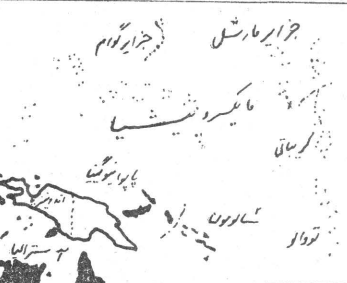 جزایر مارشل
جزایر گوام
مائیکرونیشیا
کریباتی
پاپوا نیوگنیا
سالومون
تووالو
آسٹرالیا